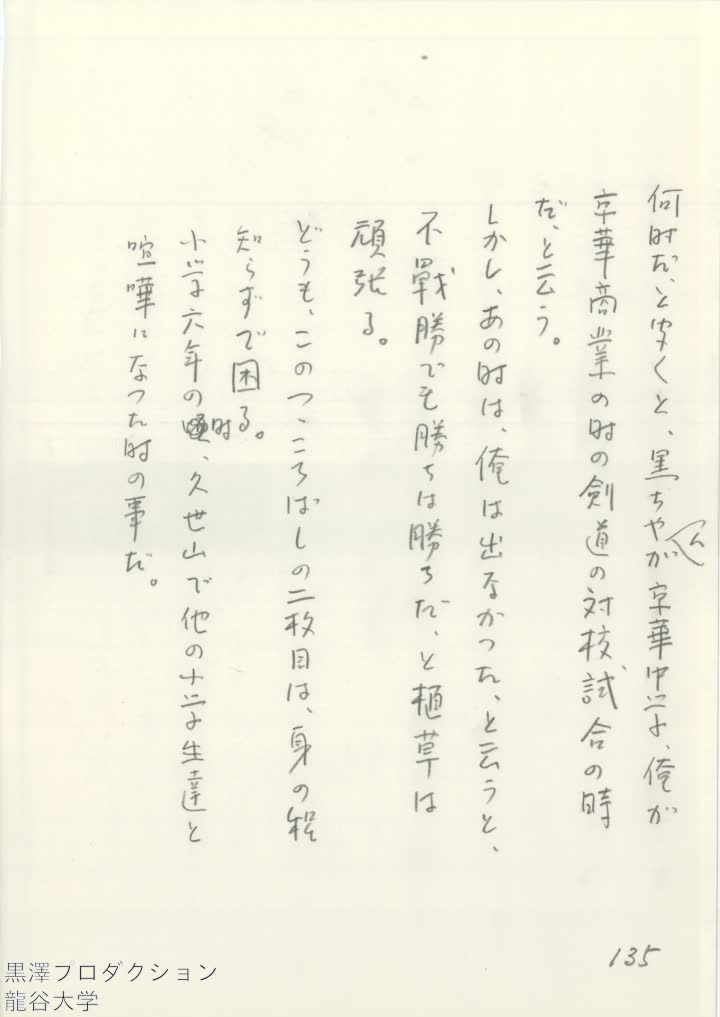 何時だ、と聞くと、黒ちやんが京華中学、俺が
京華商業の時の剣道の対校試合の時
だ、と云う。
しかし、あの時は、俺は出なかつた、と云うと、
不戰勝でも勝ちは勝ちだ、と植草は
頑張る。
どうも、このつゝころばしの二枚目は、身の程
知らずで困る。
小学六年の時、久世山で他の小学生達と
喧嘩になつた時の事だ。
135
黒澤プロダクション
龍谷大学